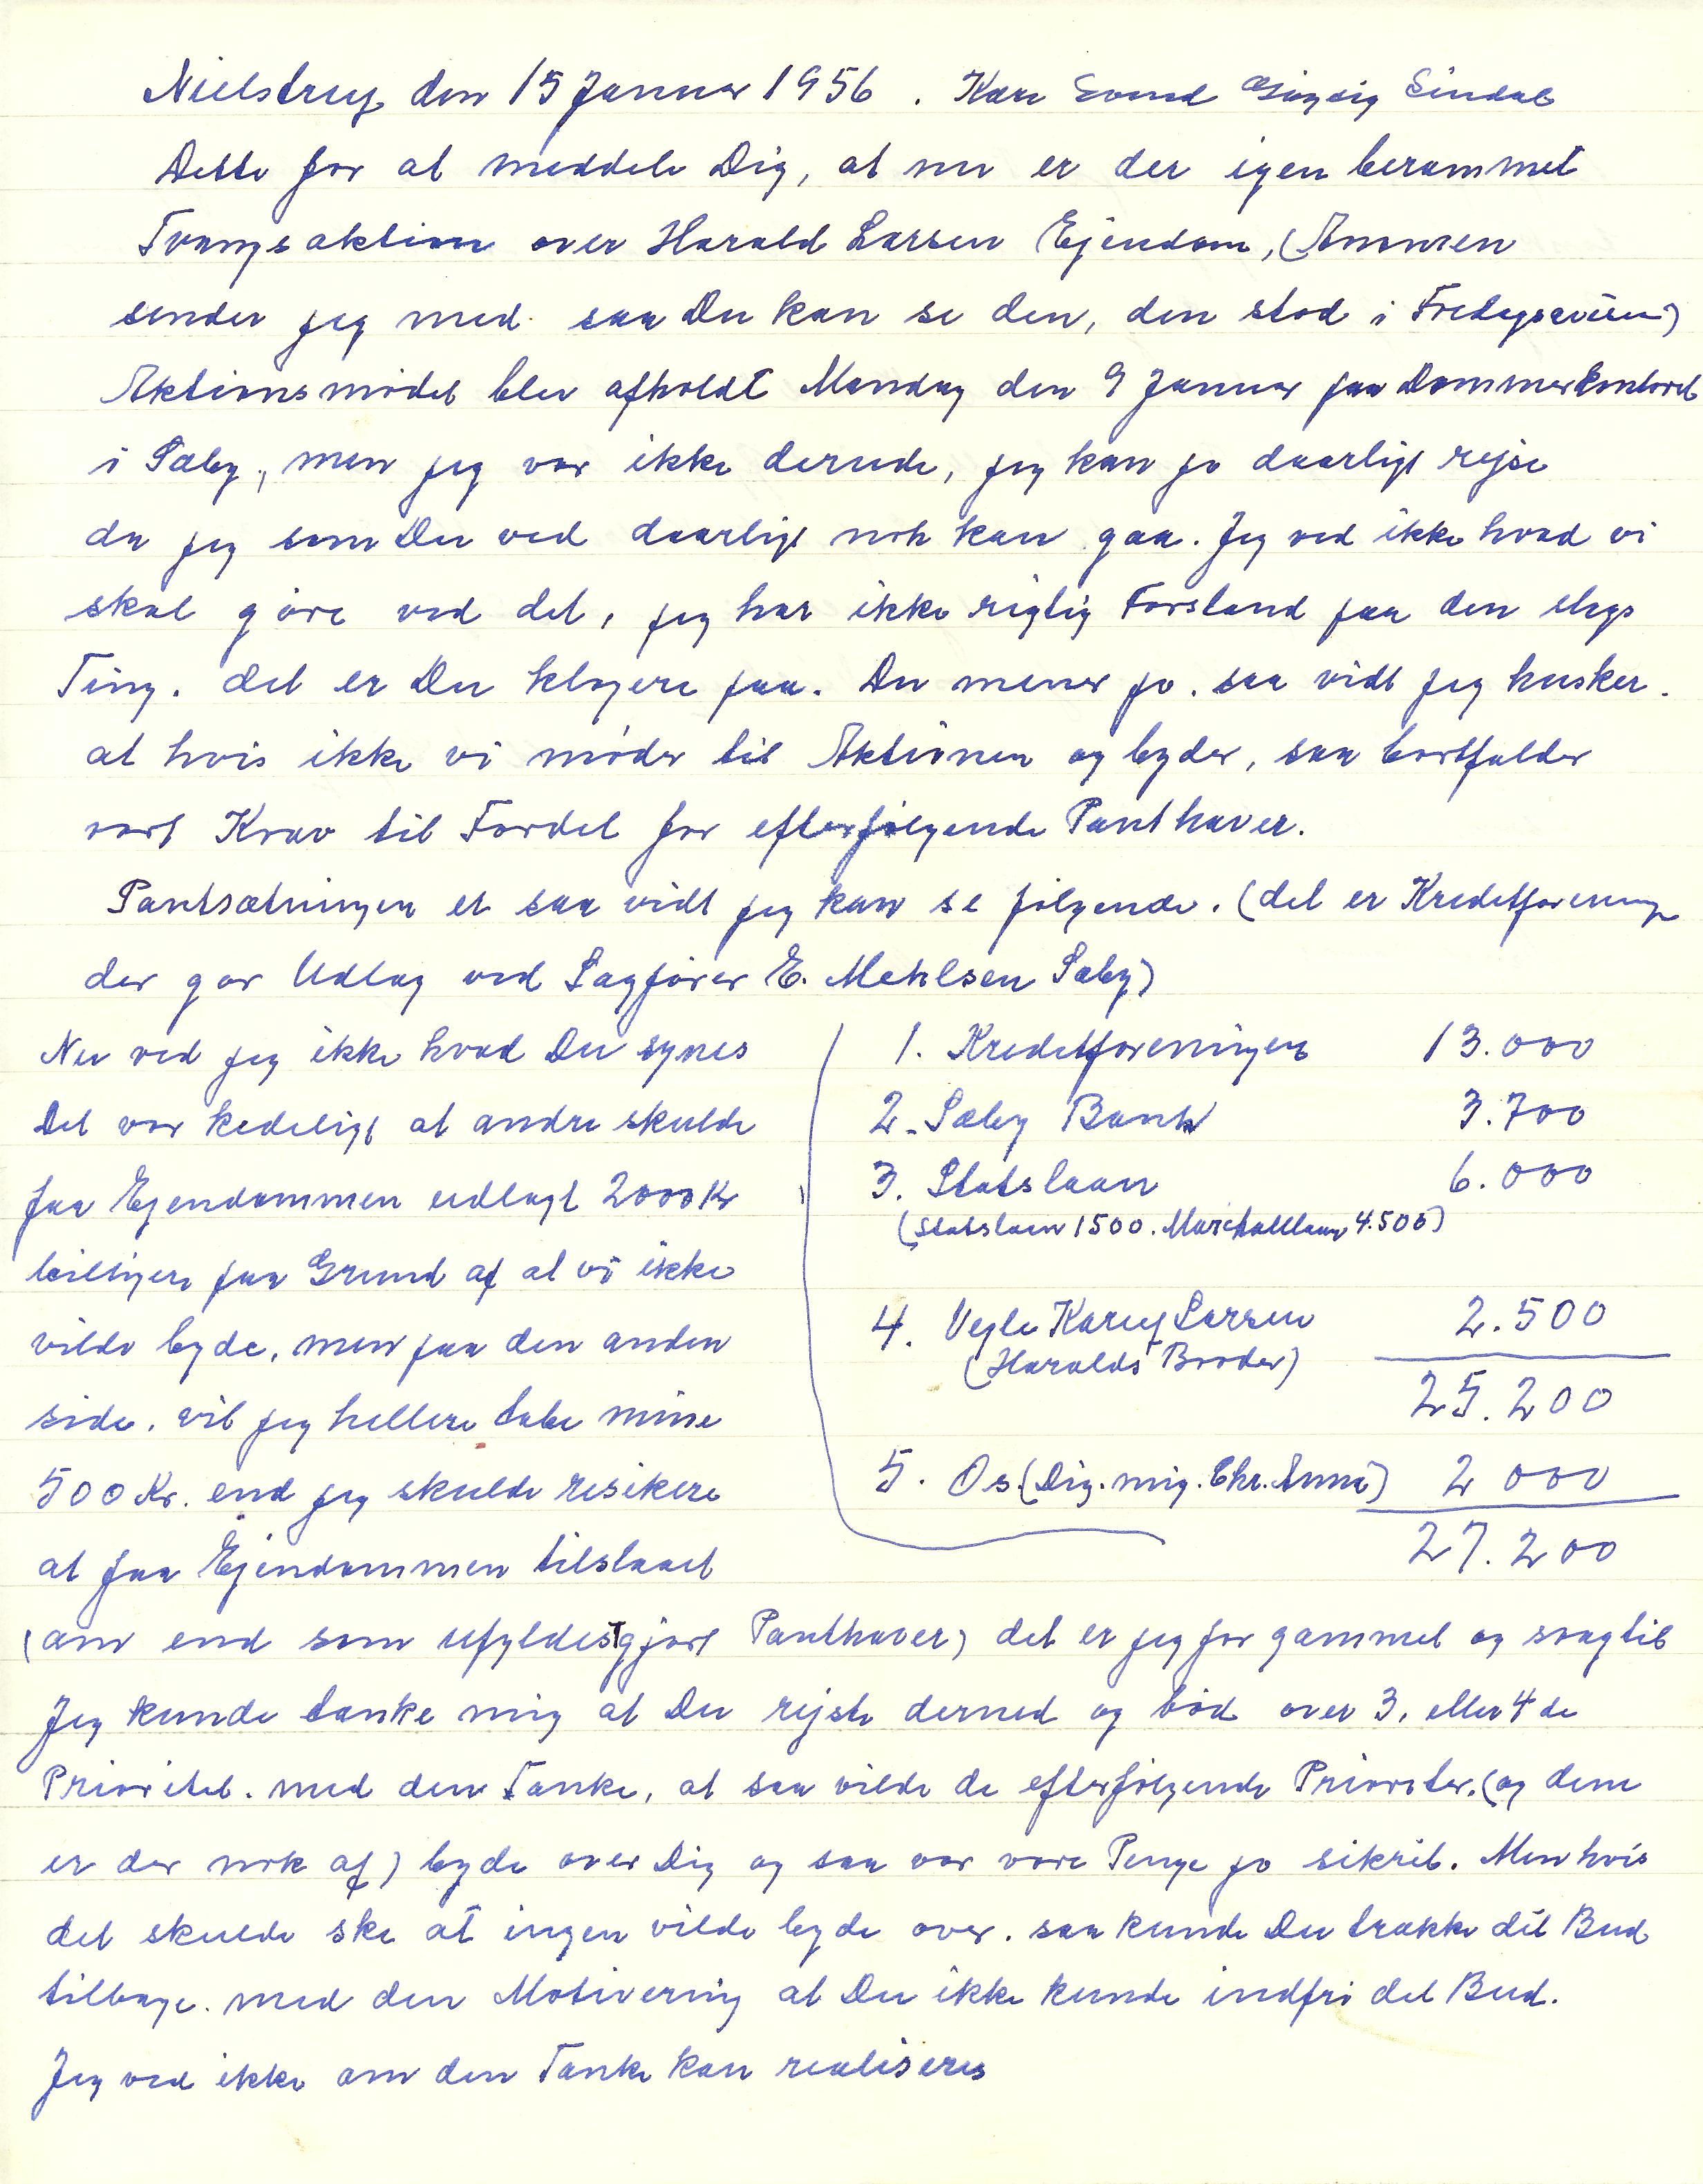 Nielstrup den 15 Januar 1956. Kære Svend Sindal
Dette for at meddele Dig, at nu er der igen berammet
Tvangsaktion over Harald Larsen Ejendom, (Annonsen
sender jeg med saa Du kan se den, den stod i Fredagsavisen)
Aktionsmødet blev afholdt Mandag den 9 Januar paa Dommerkontoret
i Sæby, men jeg var ikke derude, jeg kan jo daarligt rejse
da jeg som Du ved daarligt nok kan gaa. Jeg ved ikke hvad vi
skal göre ved det, jeg har ikke rigtig Forstand paa den slags
Ting. det er Du klogere paa. Du mener jo. saa vidt jeg husker.
at hvis ikke vi møder til Aktionen og byder, saa bortfalder
vort Krav til Fordel for efterfølgende Panthaver.
Pantsætningen er saa vidt jeg kan se følgende. (det er Kreditforening
der gør Udlæg ved Sagfører E. Mehlsen Sæby)
Nu ved jeg ikke hvad Du synes
Det var kedeligt at andre skulde
faa Ejendommen udlagt 2000 Kr
billigere paa Grund af at vi ikke
vilde byde, men paa den anden
side. vil jeg hellere tabe mine
500 Kr. end jeg skulde resikere
at faa Ejendommen tilslaaet
1. Kreditforeningen 13.000
2. Sæby Bank 3.700
3. Statslaan 6.000
(Statslaan 1500. Marchalllaan 4.500)
4. Larsen 2.500
(Haralds Broder)
25.200
5. Os (Dig. mig. Chr. Anna) 2000
27.200
(om end som ufyldestgjort Panthaver) det er jeg for gammel og svag til
Jeg kunde tænke mig at Du rejste derned og bød over 3. eller 4 de
Prioritet. med den Tanke, at saa vilde de efterfølgende Prioriter. (og dem
er der nok af) byde over Dig og saa var vore Penge jo sikret. Men hvis
det skulde ske at ingen vilde byde over. saa kunde Du trække dit Bud
tilbage. med den Motivering at Du ikke kunde indfri det Bud.
Jeg ved ikke om den Tanke kan realiseres